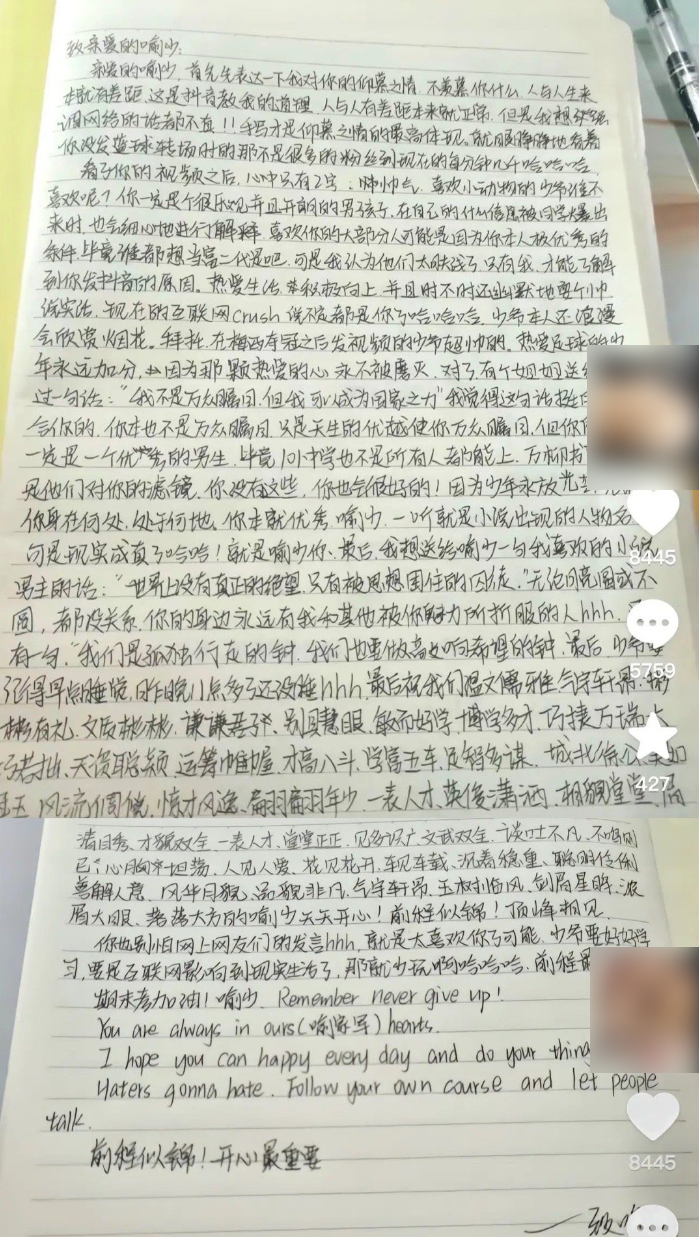 致亲爱的喻少:
亲爱的喻少,首先先表达一下我对你的仰慕之情,不羡慕你什么,人与人生来
本就有差距,这是抖音教我的道理,人与人有差距本来就正常,但是我想
网络的话都不直!!手写才是仰慕之情的最高体现,就眼睁睁地看着
你没发篮球转场时的那不是很多的粉丝到现在的每分钟几千哈哈哈,
看了你的视频之后,心中只有2字:帅帅气,喜欢小动物的少爷谁不
喜欢呢?你一定是个很乐观并且开朗的男孩子,在自己的什么信息被同学爆出
来时,也会细心地进行了解释,喜欢你的大部分人可能是因为你本人极优秀的
条件,毕竟谁都想当富二代是吧,可是我认为他们太肤浅了,只有我,才能了解
到你发抖音的原因。热爱生活,积极向上,并且时不时还幽默地耍个小帅
说实话,现在的互联网crush说不定都是你了哈哈哈,少爷本人还浪漫
会欣赏烟花。拜托,在梅西夺冠之后发视频的少爷超帅的。热爱足球的少
年永远加分,因为那颗热爱的心永不被磨灭,对了有个姐姐送
过一句话:“我不是万众瞩目,但我可以成为国家之力”我觉得这句话挺
合你的,你本也不是万众瞩目,只是天生的优越使你万众瞩目,但你
一定是一个优秀的男生,毕竟101中学也不是所有人都能上,万柳书
是他们对你的滤镜,你没有这些,你也会很好的!因为少年永放光芒,
你身在何处,处于何地,你本就优秀,喻少,一听就是小说出现的人物名
可是现实成真了哈哈!就是喻少你、最后,我想送给喻少一句我喜欢的小说
男主的话:“世界上没有真正的绝望,只有被思想困住的囚徒,”无论月亮圆或不
圆,都没关系,你的身边永远有我和其他被你魅力所折服的人hhh,
有一句,“我们是孤独行走的钟,我们也要做高处响希望的钟,最后,少爷
记得早点睡觉,昨晚11点多了还没睡hhh,最后祝我们温文儒雅、气宇轩昂、彬
彬有礼、文质彬彬、谦谦君子、别具慧眼、敏而好学、博学多才、巧捷万端、大
巧若拙、天资聪颖、运筹帷幄、才高八斗、学富五车、足智多谋、城北徐公、美如
冠玉、风流倜傥、惊才风逸、翩翩年少、一表人才、英俊潇洒、相貌堂堂、眉
清目秀、才貌双全、一表人才、堂堂正正、见多识广、文武双全、谈吐不凡、不鸣则
已、心胸坦荡、人见人爱、花见花开、车见车载、沉着稳重、聪明伶俐
善解人意、风华月貌、品貌非凡、气宇轩昂、玉树临风、剑眉星眸、浓
眉大眼、落落大方的喻少天天开心!前程似锦!顶峰相见,
你也别怕网上网友们的发言hhh,就是太喜欢你了可能,少爷要好好学
习,要是互联网影响到现实生活了,那就少玩啊哈哈哈,前程
期末考加油!喻少,Remember never give up!
You are always in ours(喻家军)hearts.
I hope you can happy every day and do your thing
Haters gonna hate. Follow your own course and let people
talk.
前程似锦!开心最重要
8445
5759
427
8445